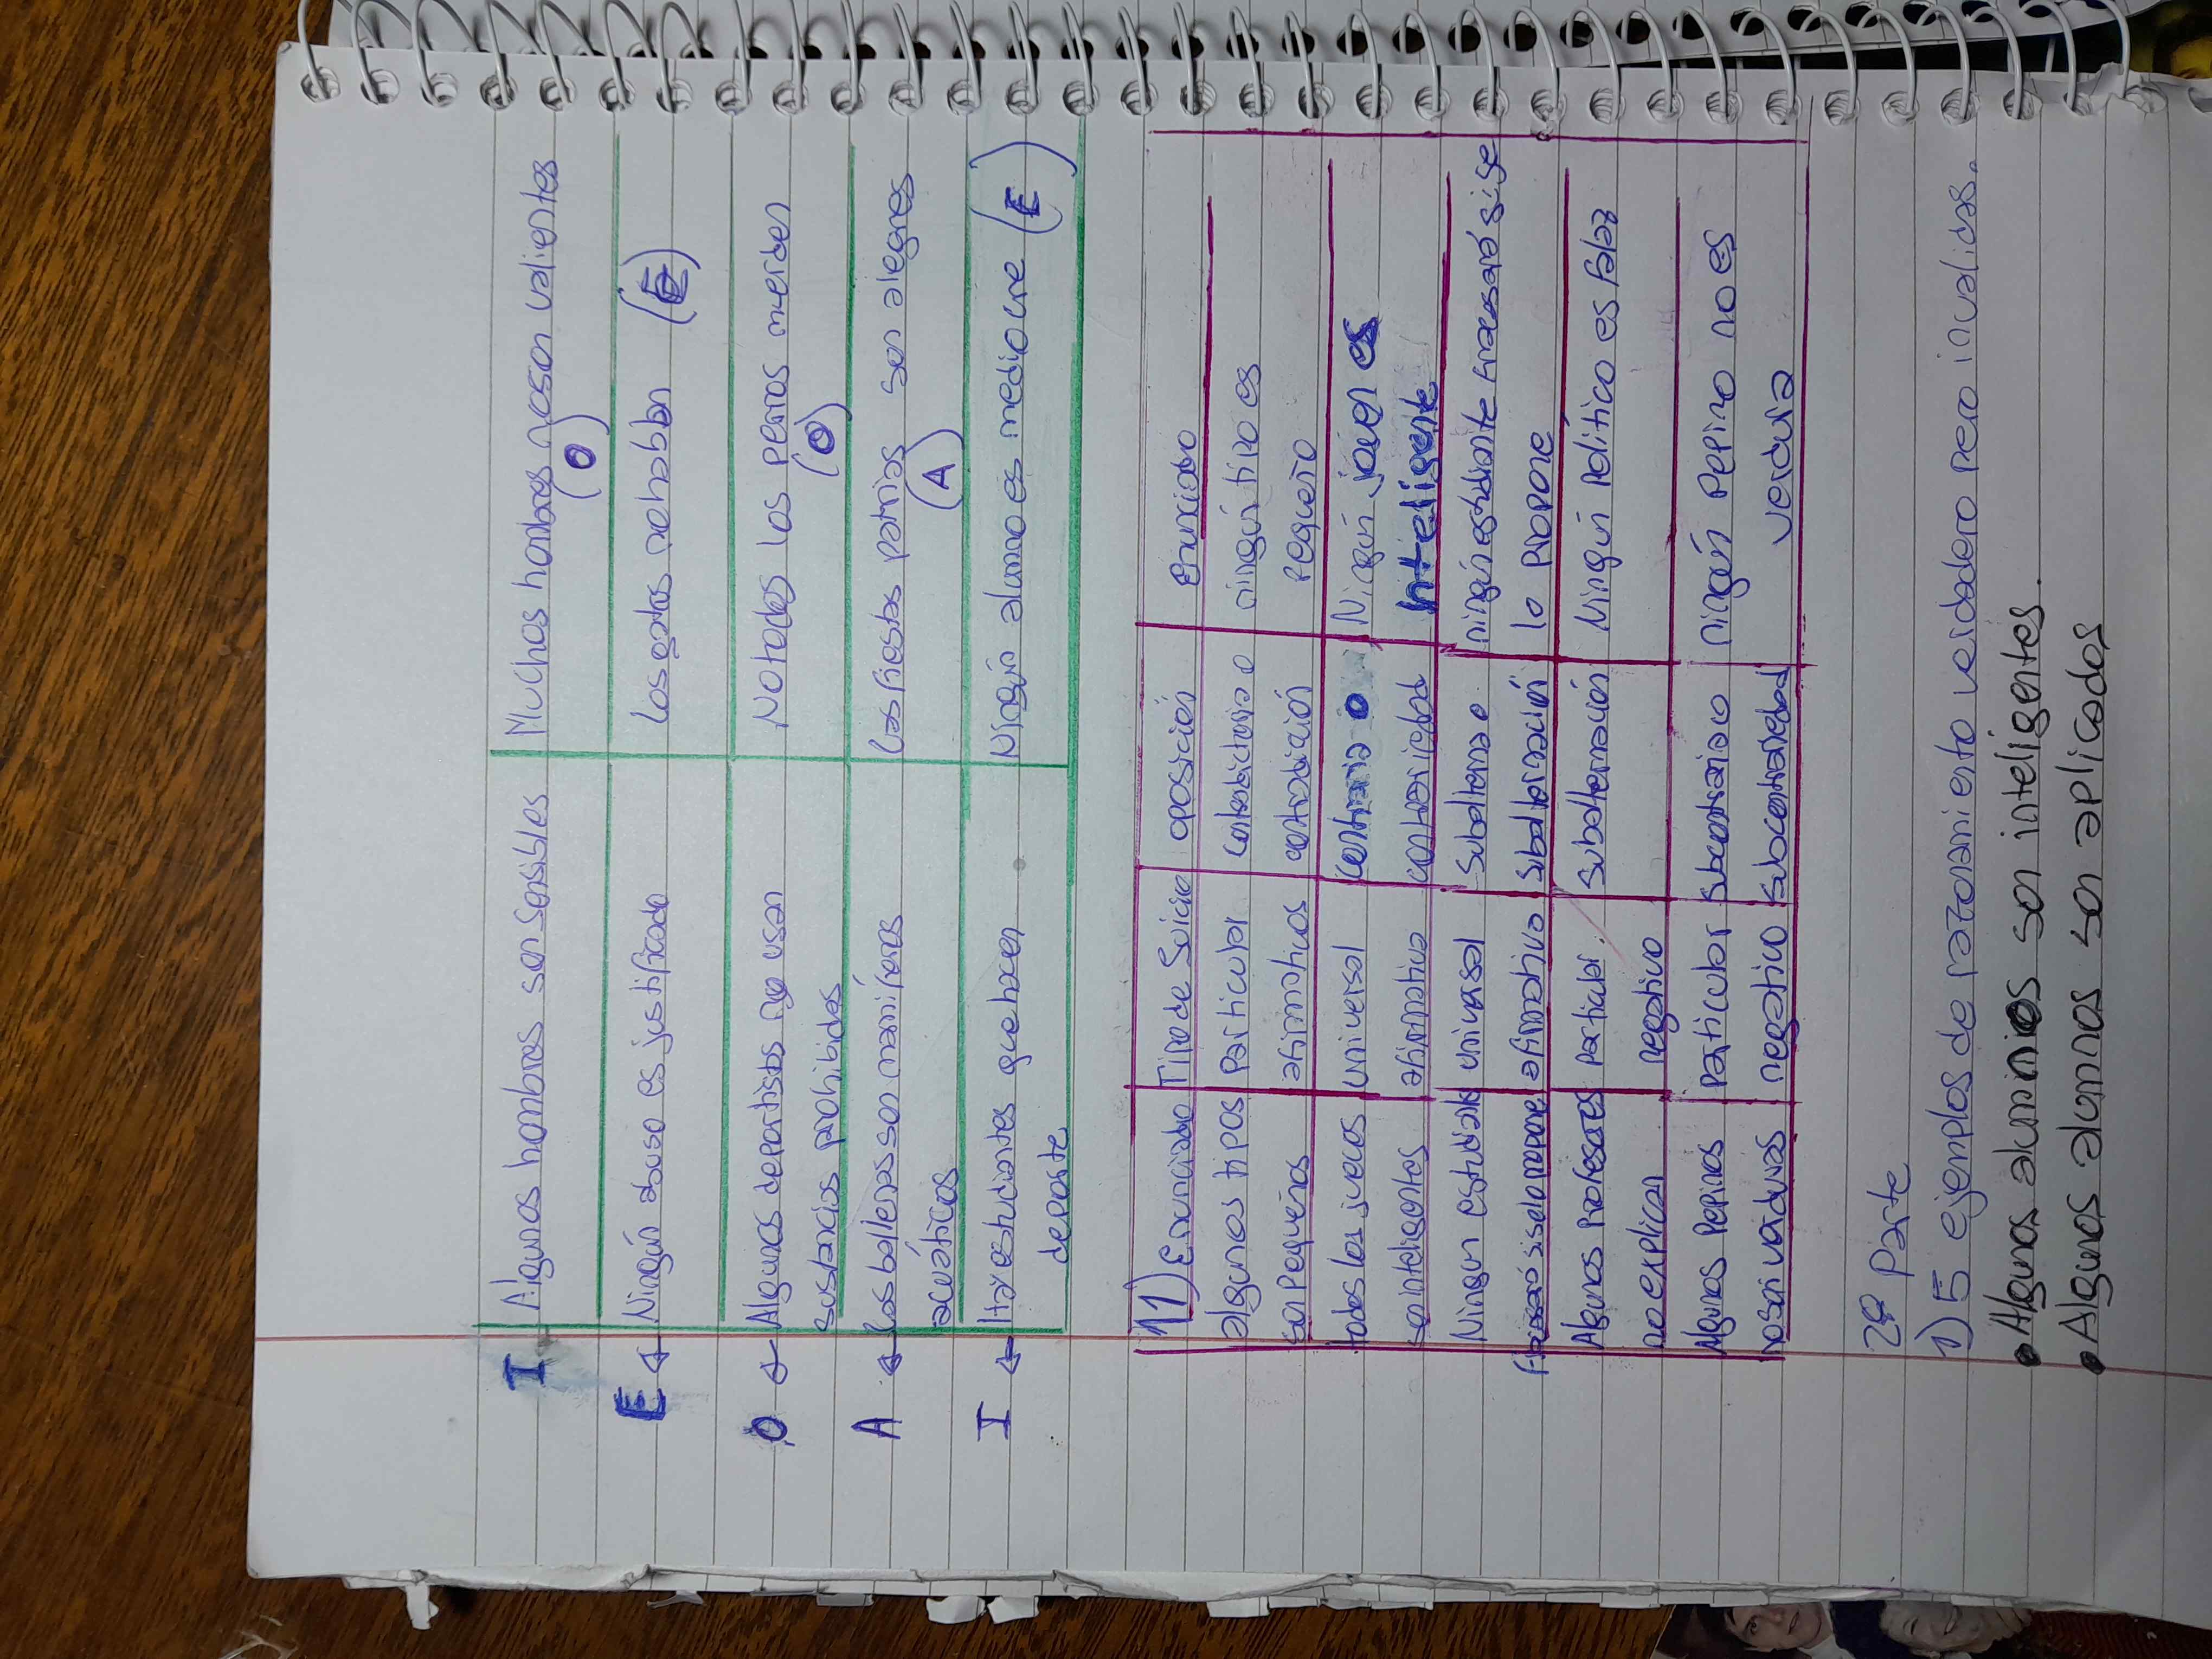 I Algunos hombres son sensibles Muchos hombres no son valientes
(O)
E ← Ningún abuso es justificado Los gatos no hablan (E)
O ← Algunos deportistas no usan No todos los perros muerden
sustancias prohibidas (O)
A ← Las ballenas son mamíferos Las fiestas patrias son alegres
acuáticos (A)
I ← Hay estudiantes que hacen Ningún alumno es mediocre (E)
deporte
11) Enunciado Tipo de Juicio oposición Enunciado
algunos tipos particular contradictoria o ningún tipo es
son pequeños afirmativos contradicción pequeño
todos los jueces universal Contraria o Ningún joven es
son inteligentes afirmativo contrariedad inteligente
Ningun estudiante universal Subalterna o ningún estudiante fracasará si se
fracasó si se lo propone afirmativo subalternación lo propone
Algunos profesores particular Subalternación Ningún político es falaz
no explican negativo
Algunos pepinos particular subcontrario o ningún pepino no es
no son verduras negativo subcontrariedad verdura
2ª Parte
1) 5 ejemplos de razonamiento verdadero pero invalidas.
• Algunos alumnos son inteligentes.
• Algunos alumnos son aplicados